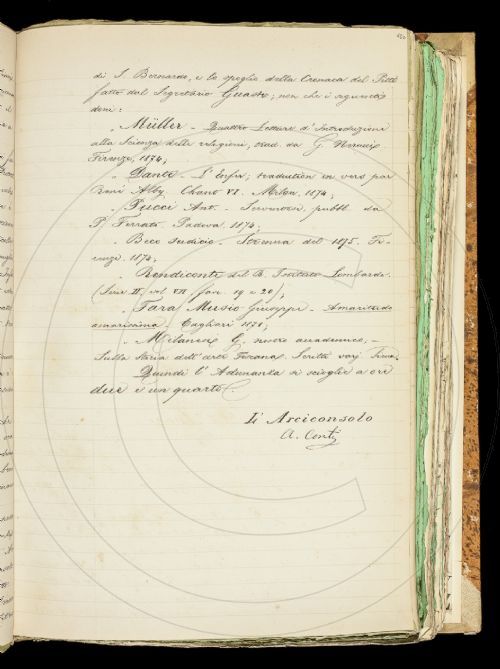 di S. Bernardo, e lo spoglio della Cronaca del Pitti
fatto dal Segretario Guasti; non che i seguenti
doni:
„ Müller - Quattro Letture d'Introduzione
alla Scienza delle religioni, trad. da G. Nerucci
Firenze, 1874;
„ Dante - L'Enfer; traduction en vers par
Abby. Chant VI. Milan, 1874;
„ Pucci Ant. Serventesi, pubbl. da
P. Ferrato. Padova. 1874;
„ Beco Sudicio - Strenna del 1875. Fi-
renze. 1874;
„ Rendiconti del R. Istituto Lombardo.
(Serie II, vol. VII, fasc. 19 e 20);
„ Fara Musio Giuseppe - Amaritudo
amarissima - Cagliari 1871;
„ Milanesi G. nostro accademico, -
Sulla Storia dell'arte Toscana. Scritti varj.
Quindi l'Adunanza si scioglie a ore
due e un quarto
L'Arciconsolo
A. Conti